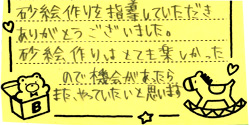 砂絵作りを指導していただき
ありがとうございました。
砂絵作りはとても楽しかった
ので機会があたら
また、やっていたいと思います
B